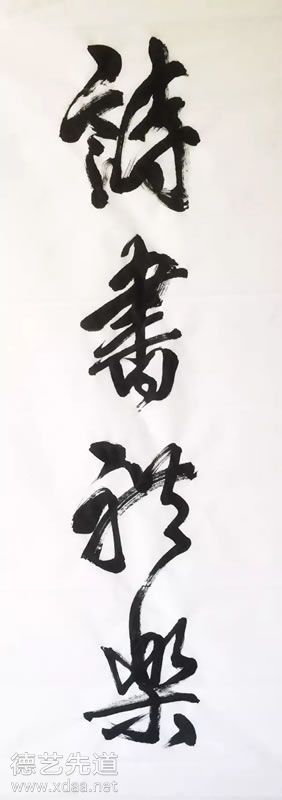 詩書礼樂
德艺先道
www.xdaa.net